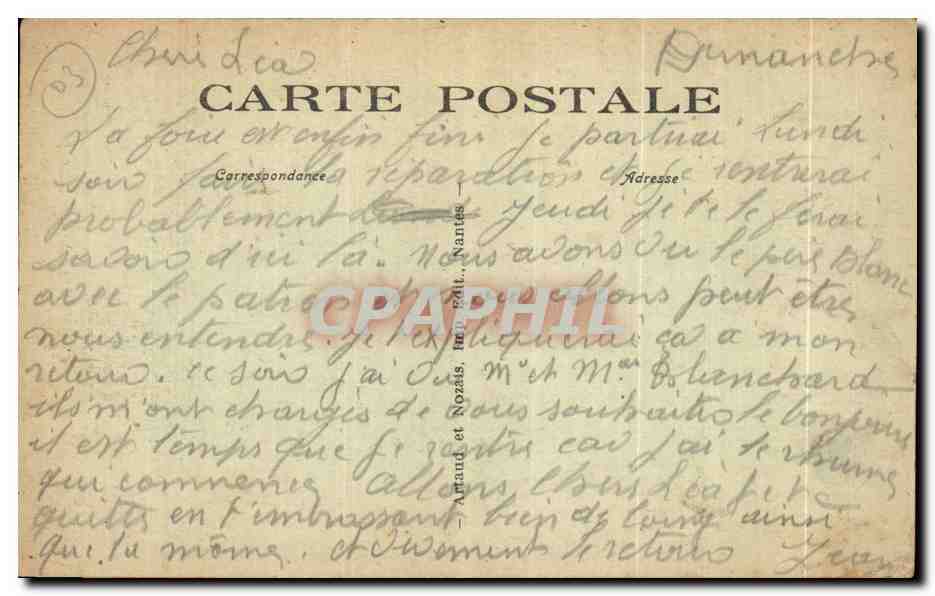 03
Cheri Léa Dimanche
CARTE POSTALE
La foire est enfin fini je partirai Lundi
Correspondance Adresse
soir faire la réparation et je rentrerai
probablement Jeudi je te le ferai
savoir d'ici là. Nous avons vu le père Blanc
avec le patron et nous allons peut être
CPAPHIL
nous entendre. je t'expliquerai ça a mon
retour. ce soir j'ai vu Mr et Mme Blanchard
ils m'ont chargés de vous souhaiter le bonjour
il est temps que je rentre car j'ai le rhume
qui commence Allons Chers Léa je te
quitte en t'embrassant bien de loing ainsi
que la môme. et vivement le retour Jean
— Artaud et Nozais, Imp. Edit., Nantes —